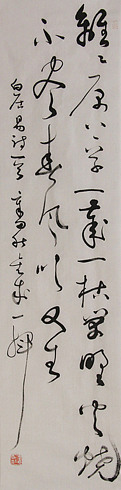 離〻原上草一歲一枯榮野火燒
不盡春風吹又生
白居易詩一首